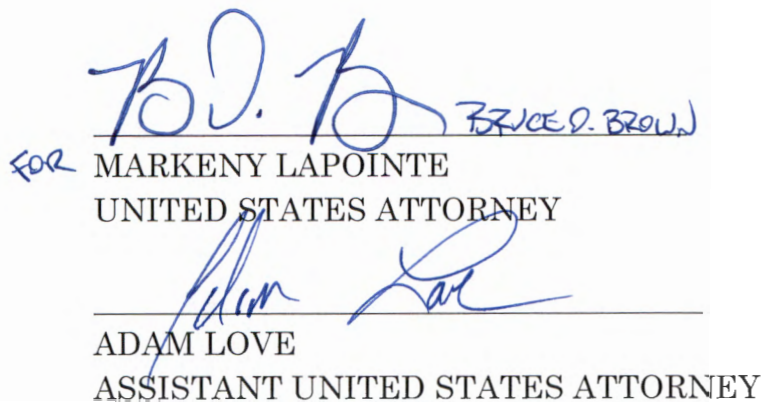 B D. B BRUCE D. BROWN
FOR MARKENY LAPOINTE
UNITED STATES ATTORNEY
Adam Love
ADAM LOVE
ASSISTANT UNITED STATES ATTORNEY